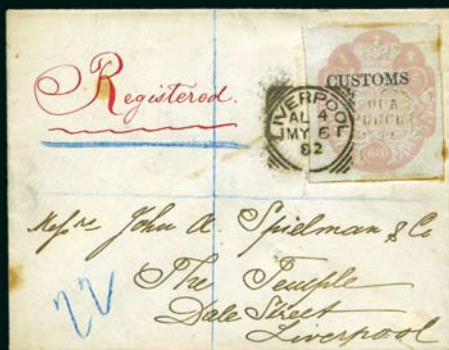 Registered.
CUSTOMS
LIVERPOOL
AL 4
MY 6
82
Messrs John A. Spielman & Co
The Temple
Dale Street
Liverpool
22